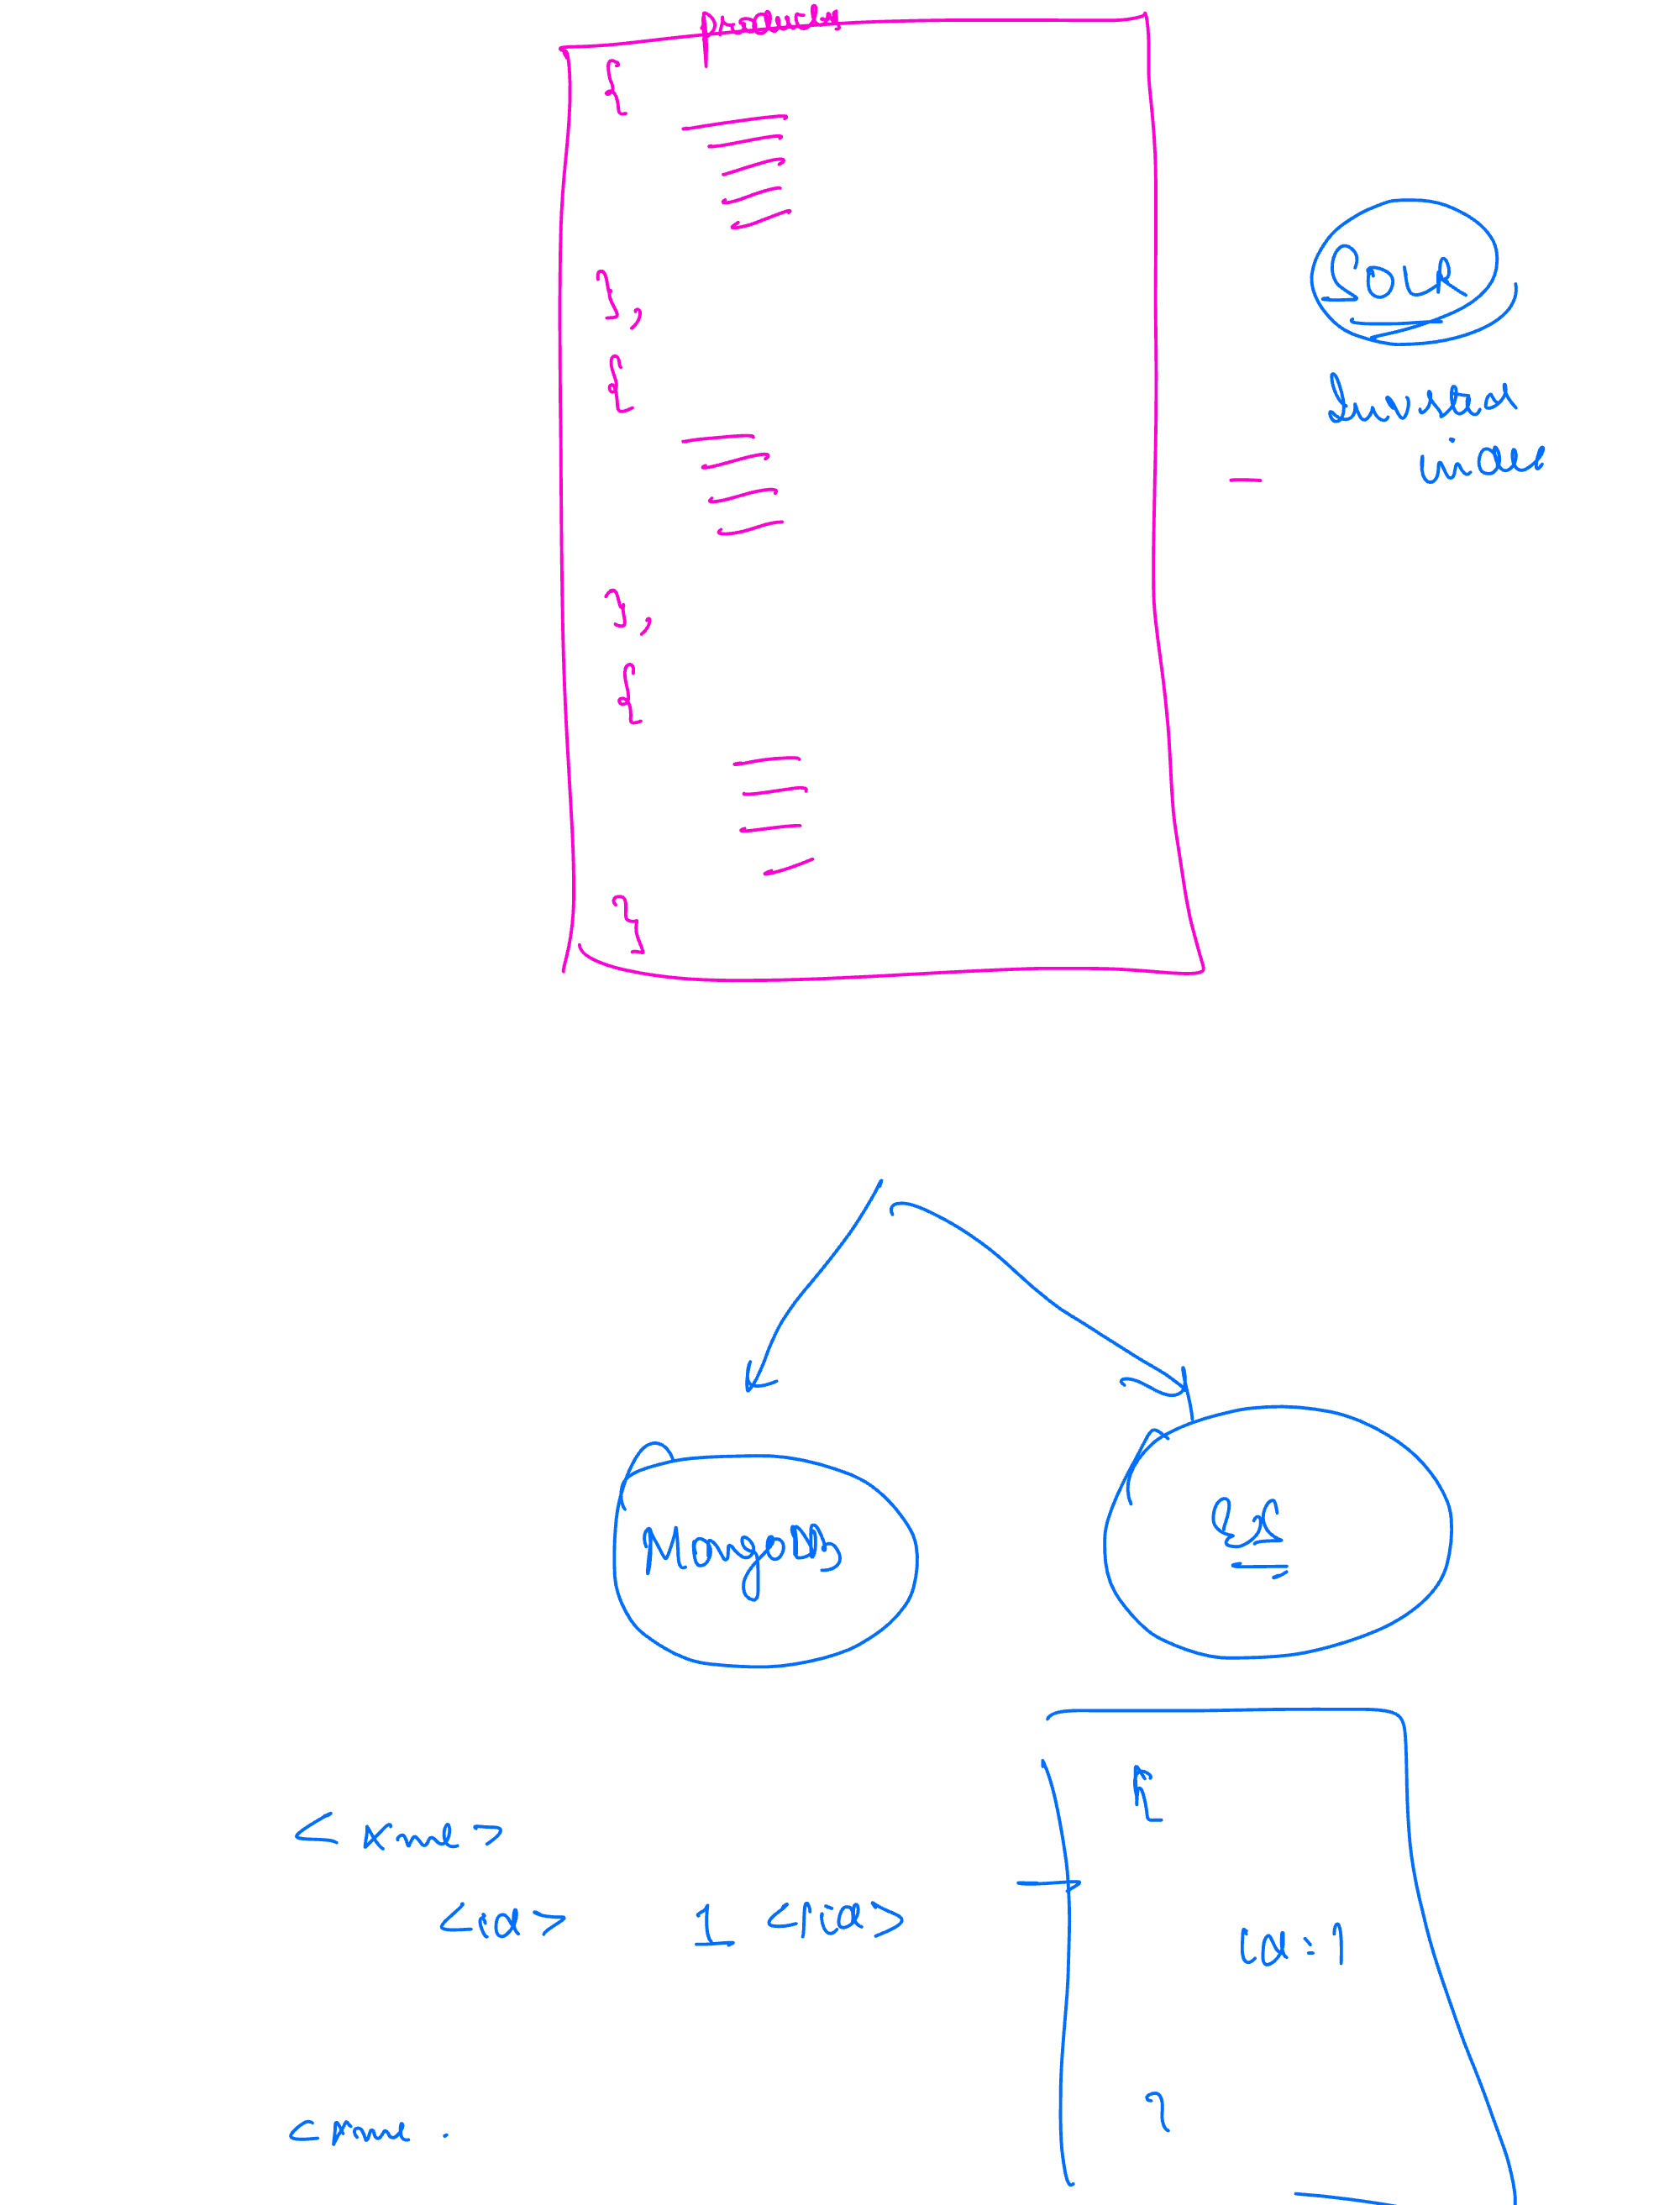 products
{
},
{
},
{
}
SOLR
Inverted
index
MongoDB
ES
<xml>
<id> 1 </id>
{
id:1
}
<xml.